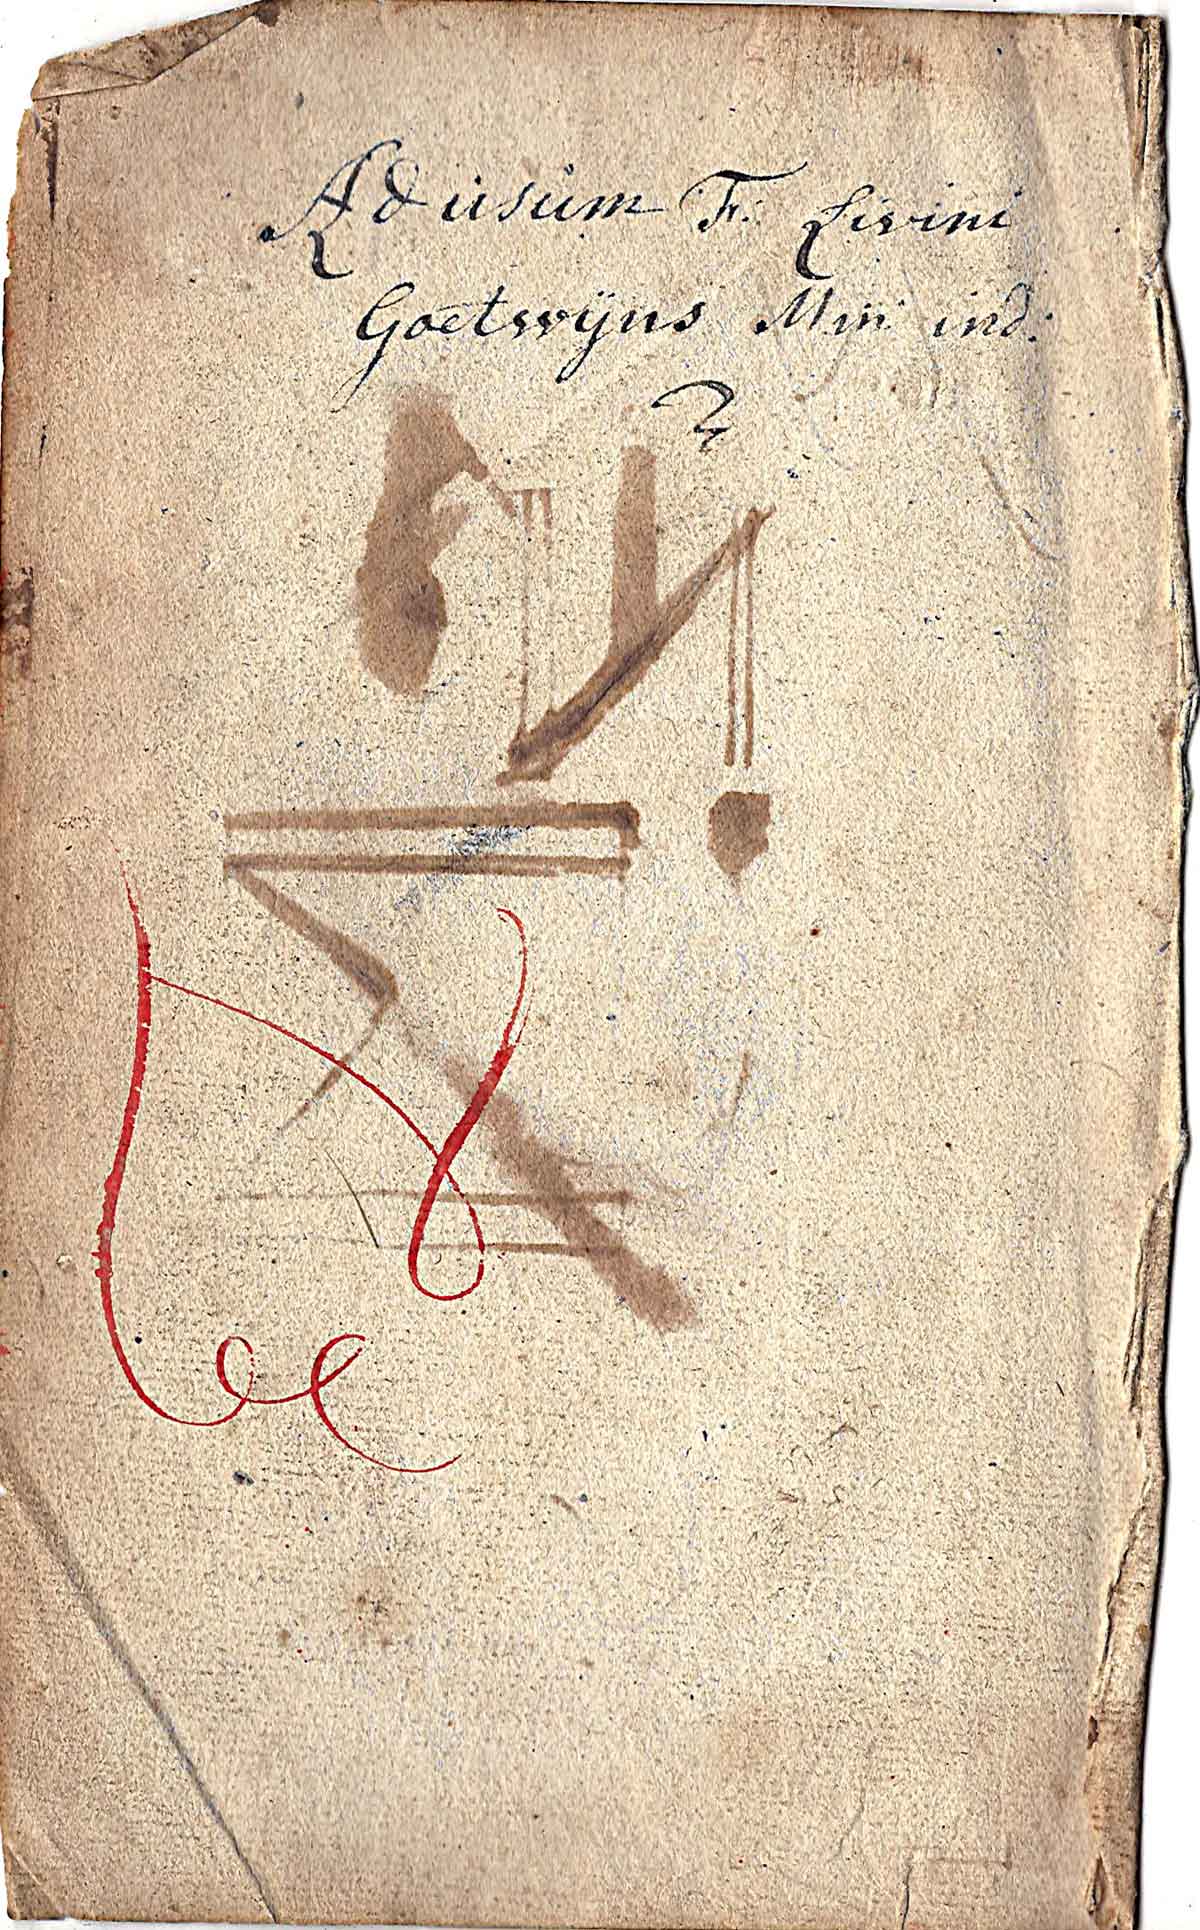 Ad usum F. Livini
Goetwijns Min ind: